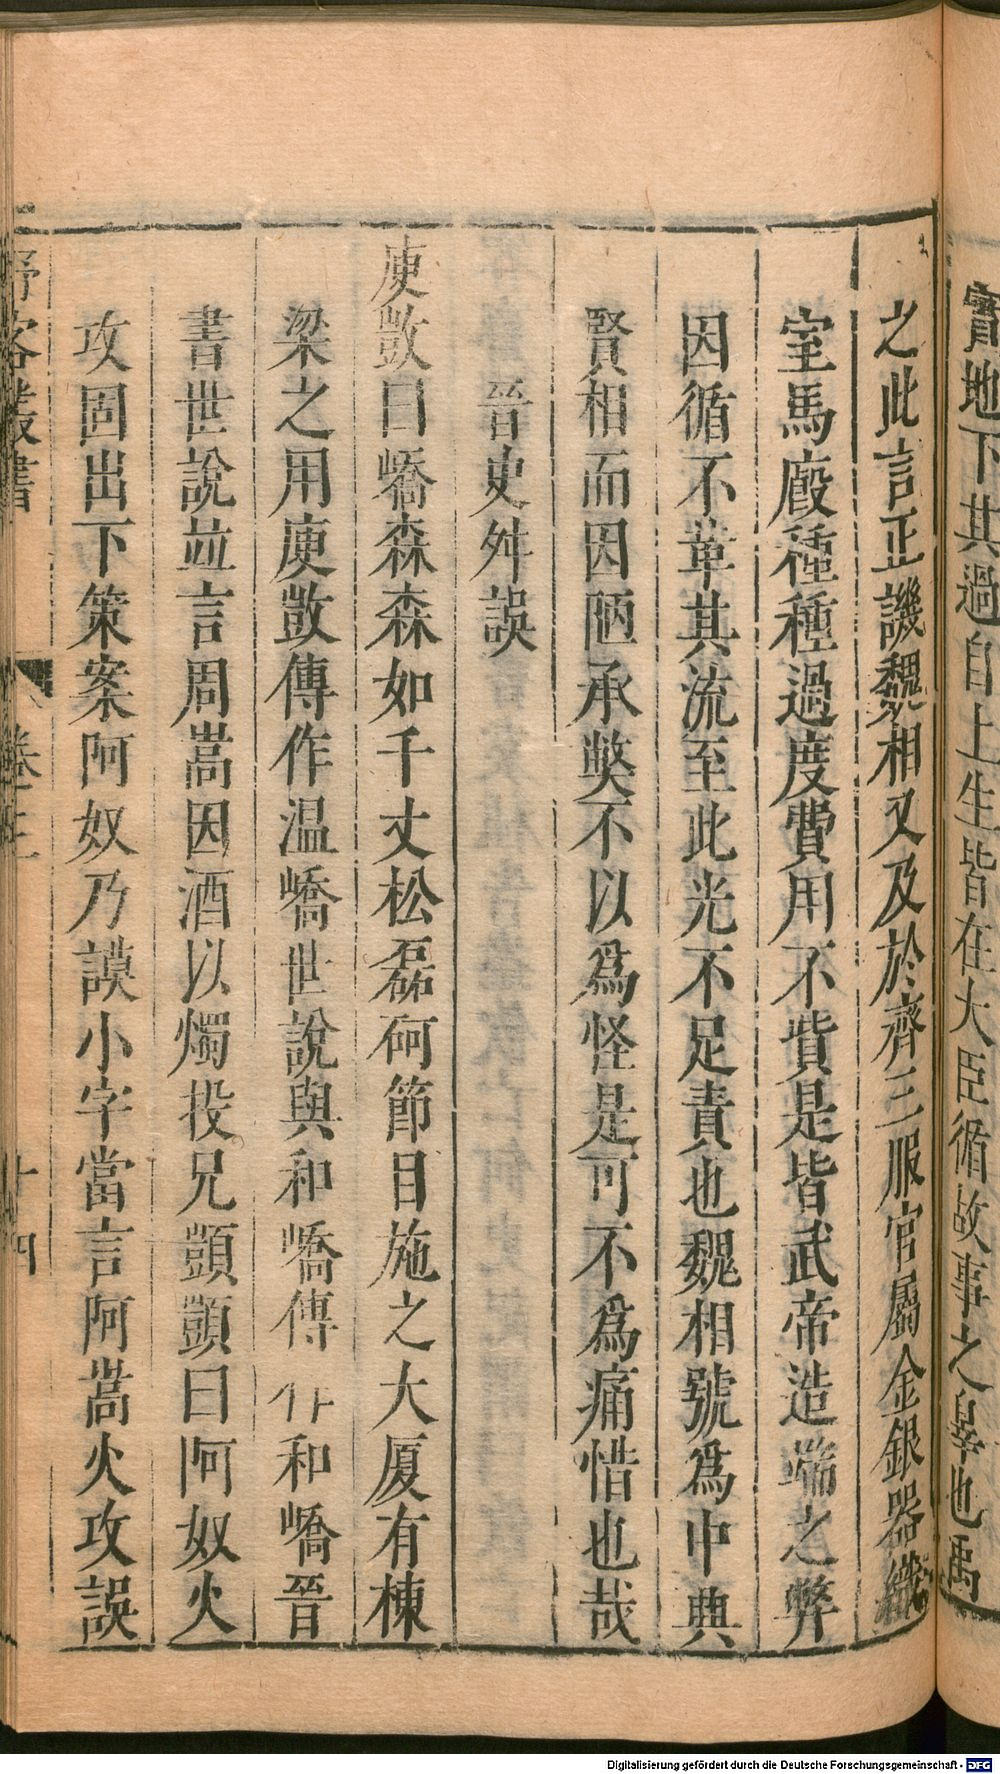 實地下其過自上生皆在大臣循故事之辠也禹
之此言正譏魏相又及於齊三服官屬金銀器織
室馬廄種種過度費用不貲是皆武帝造端之弊
因循不革其流至此光不足責也魏相號爲中興
賢相而因陋承獘不以爲怪是可不爲痛惜也哉
晉史舛誤
庾敳曰嶠森森如千丈松磊砢節目施之大厦有棟
梁之用庾敳傳作温嶠世說與和嶠傳作和嶠晉
書世說並言周嵩因酒以燭投兄顗顗曰阿奴火
攻固出下策案阿奴乃謨小字當言阿嵩火攻誤
野客叢書
卷三
十四
Digitalisierung gefördert durch die Deutsche Forschungsgemeinschaft - DFG